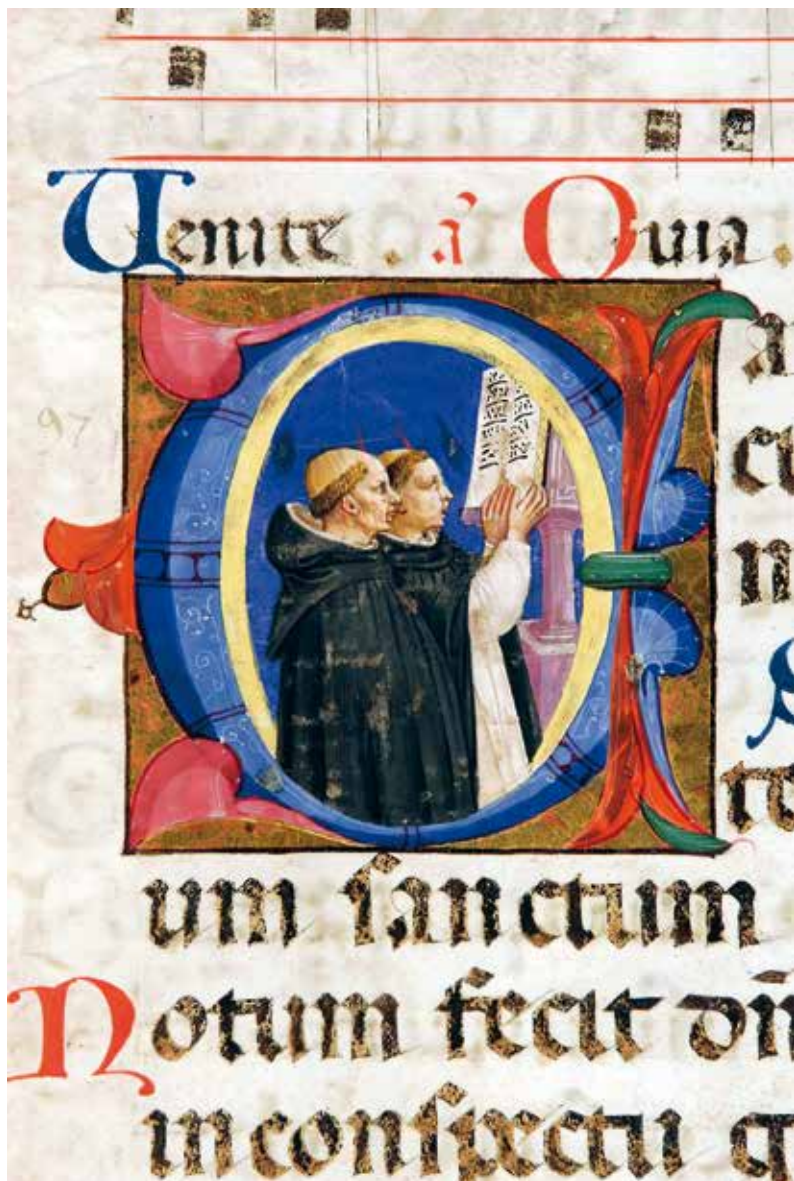 Uenite . a̓ Quia .
97
C a
ct
n
S
te
um sanctum
Notum fecit dn̄
in conspectu g